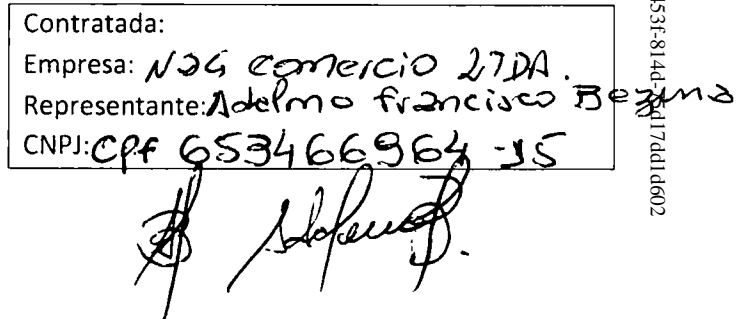 Contratada:
Empresa: NJG comercio LTDA.
Representante: Adelmo francisco Bezerra
CNPJ: CPF 653466964-15
453f-814d- d17dd1d602